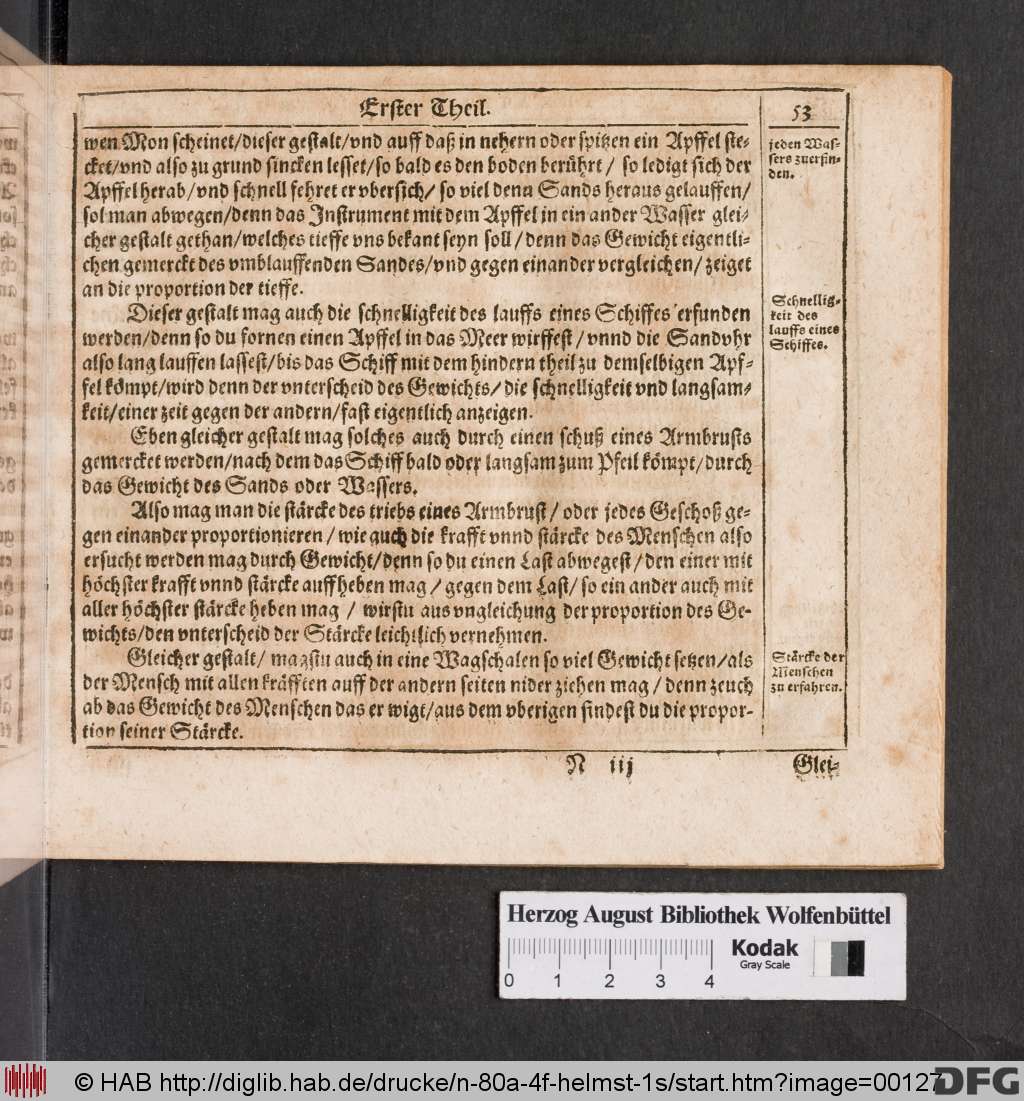 Erster Theil.
53
wen Mon scheinet/dieser gestalt/vnd auff daß in nehern oder spitzen ein Apffel ste-
cket/vnd also zu grund sincken lesset/so bald es den boden berührt/ so ledigt sich der
Apffel herab/vnd schnell fehret er vbersich/ so viel denn Sands heraus gelauffen/
sol man abwegen/denn das Instrument mit dem Apffel in ein ander Wasser glei-
cher gestalt gethan/welches tieffe vns bekant seyn soll/denn das Gewicht eigentli-
chen gemerckt des vmblauffenden Sandes/vnd gegen einander vergleichen/ zeiget
an die proportion der tieffe.
jeden Was-
sers zuerfin-
den.
Dieser gestalt mag auch die schnelligkeit des lauffs eines Schiffes erfunden
werden/denn so du fornen einen Apffel in das Meer wirffest/ vnnd die Sandvhr
also lang lauffen lassest/bis das Schiff mit dem hindern theil zu demselbigen Apf-
fel kömpt/wird denn der vnterscheid des Gewichts/ die schnelligkeit vnd langsam-
keit/einer zeit gegen der andern/fast eigentlich anzeigen.
Schnellig-
keit des
lauffs eines
Schiffes.
Eben gleicher gestalt mag solches auch durch einen schuß eines Armbrusts
gemercket werden/nach dem das Schiff bald oder langsam zum Pfeil kömpt/durch
das Gewicht des Sands oder Wassers.
Also mag man die stärcke des triebs eines Armbrust/ oder jedes Geschoß ge-
gen einander proportionieren/ wie auch die krafft vnnd stärcke des Menschen also
ersucht werden mag durch Gewicht/denn so du einen Last abwegest/den einer mit
höchster krafft vnnd stärcke auffheben mag/ gegen dem Last/ so ein ander auch mit
aller höchster stärcke heben mag / wirstu aus vngleichung der proportion des Ge-
wichts/den vnterscheid der Stärcke leichtlich vernehmen.
Gleicher gestalt/ magstu auch in eine Wagschalen so viel Gewicht setzen/als
der Mensch mit allen kräfften auff der andern seiten nider ziehen mag/denn zeuch
ab das Gewicht des Menschen das er wigt/aus dem vberigen findest du die propor-
tion seiner Stärcke.
Stärcke der
Menschen
zu erfahren.
N iij
Glei-
Herzog August Bibliothek Wolfenbüttel
Kodak
Gray Scale
0 1 2 3 4
© HAB http://diglib.hab.de/drucke/n-80a-4f-helmst-1s/start.htm?image=00127
DFG